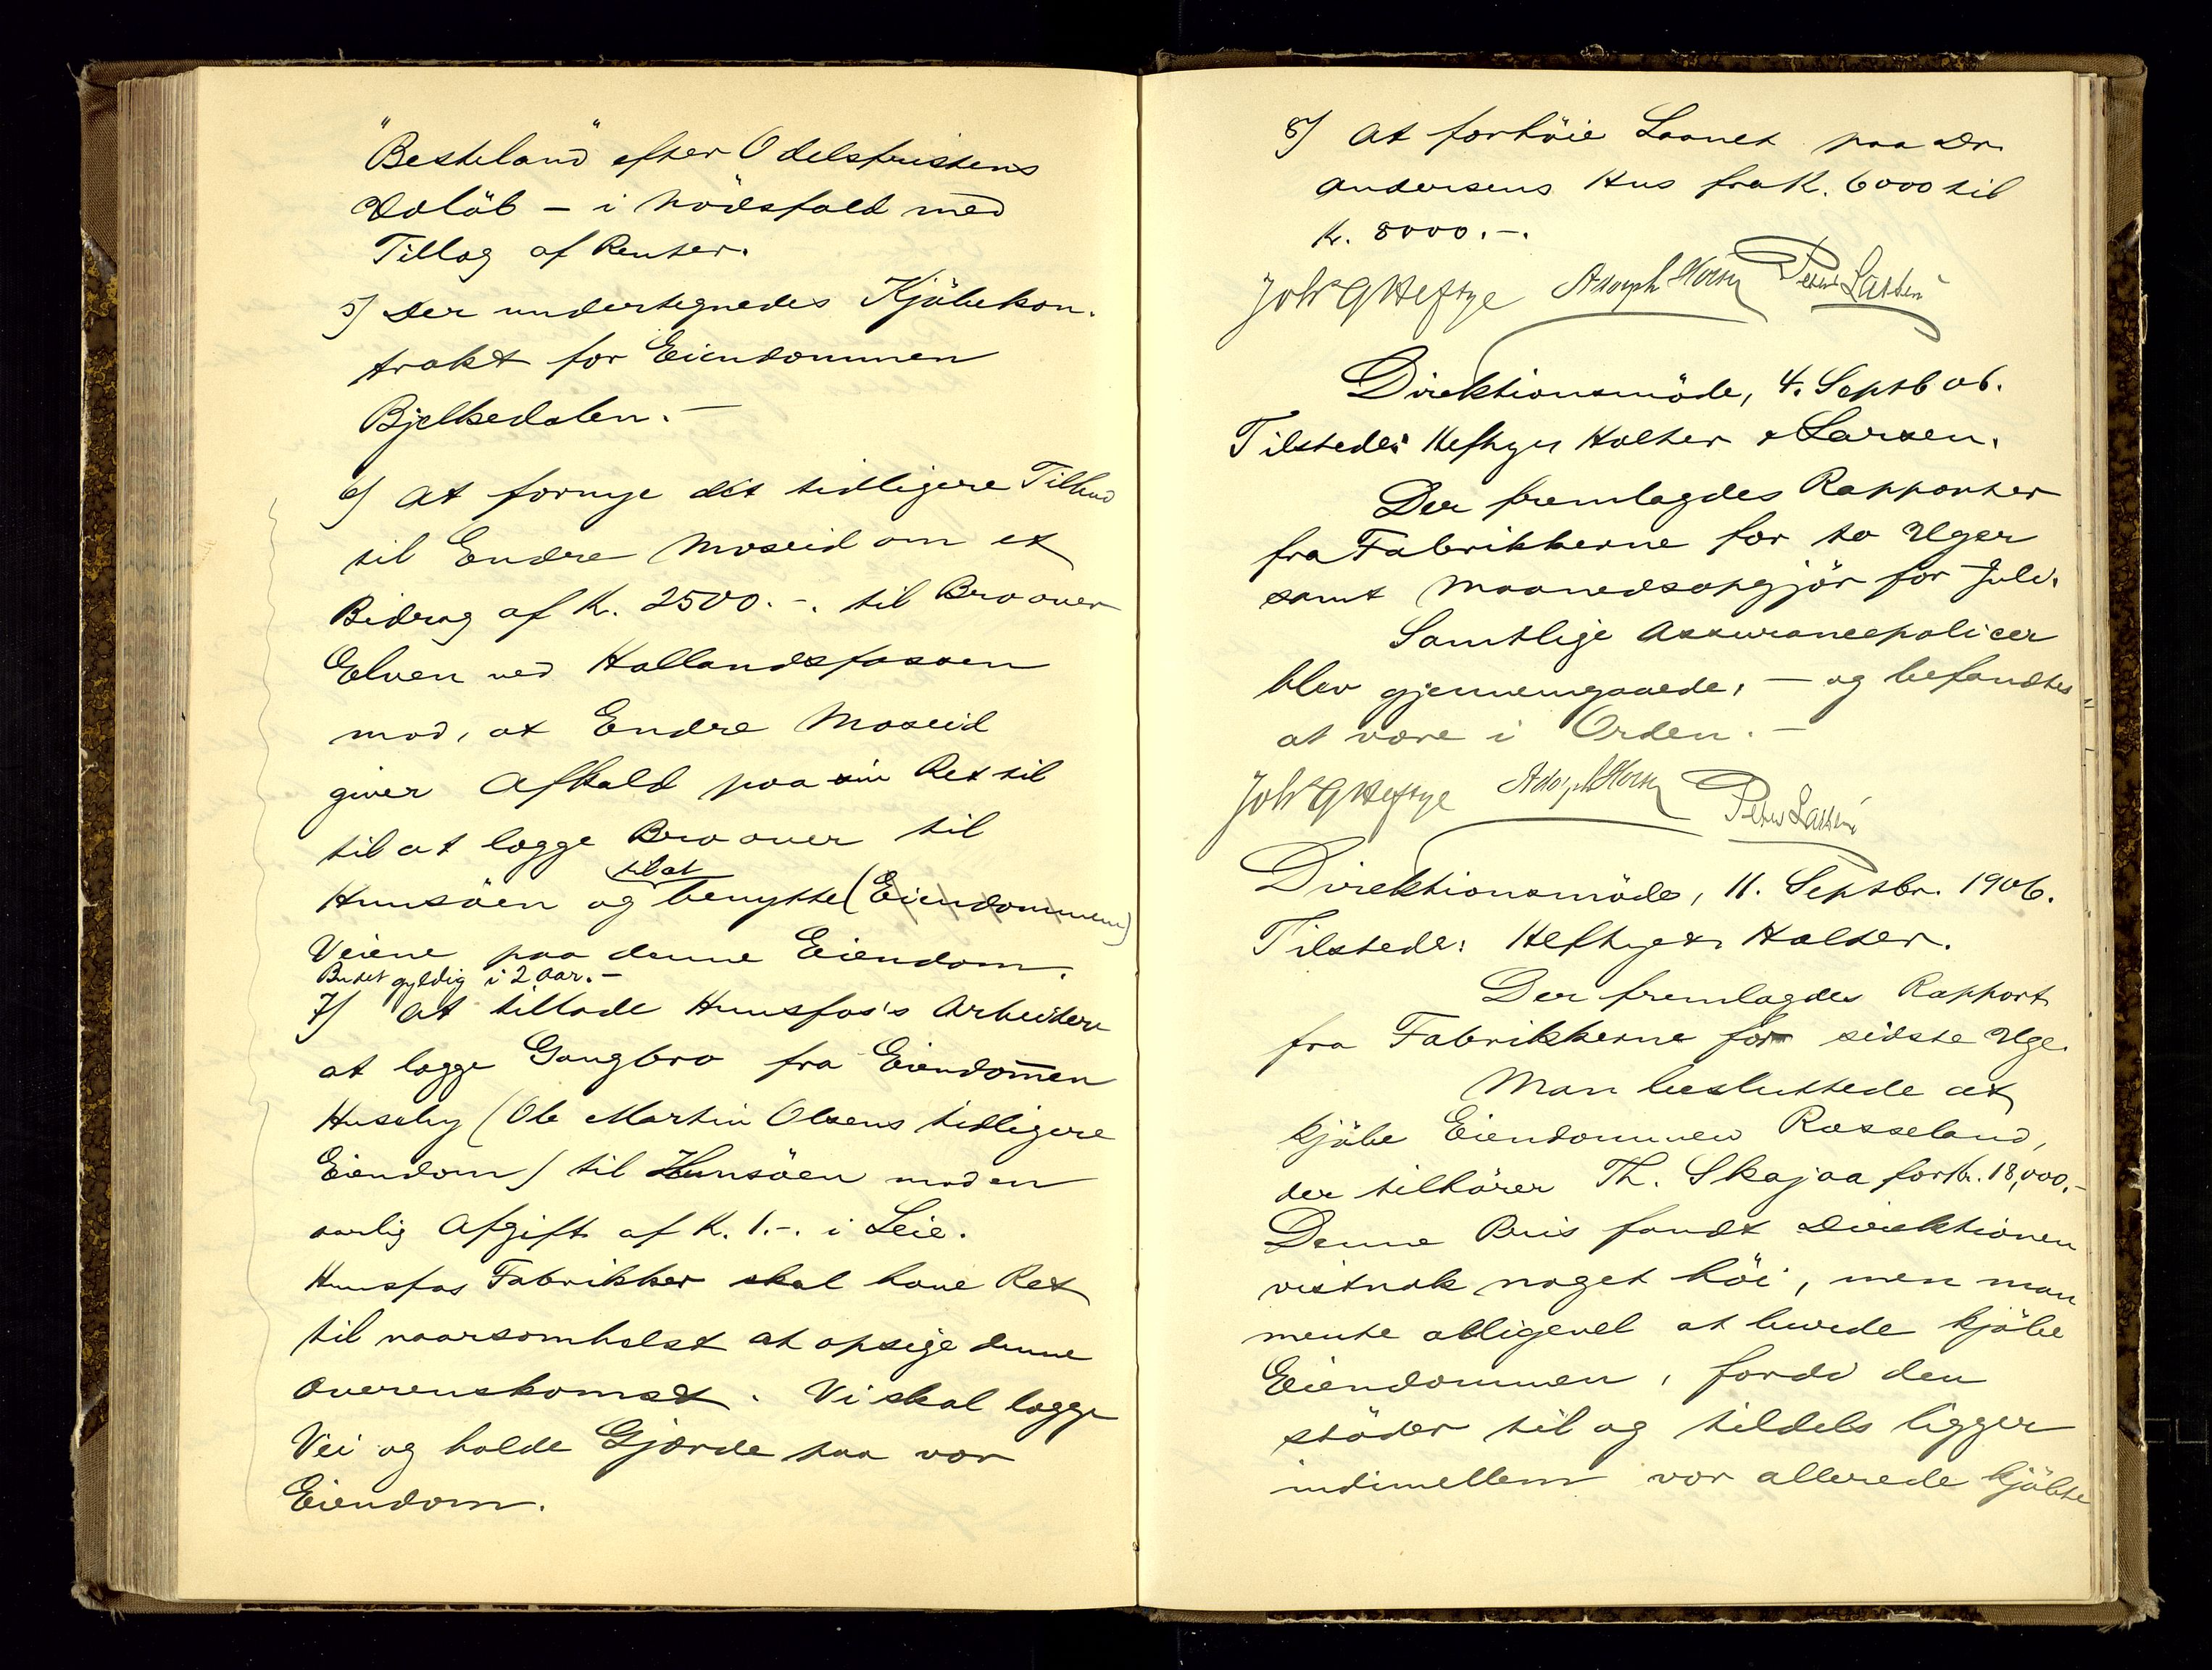 "Besteland" efter Odelsfristens
Udløb - i Nødsfald med
Tillæg af Renter.
5) Der undertegnedes Kjøbekon-
trakt for Eiendommen
Bjelkedalen. -
6) At fornye det tidligere Tilbud
til Endre Moseid om et
Bidrag af K. 2500.-. til Bro over
Elven ved Hallandsfossen
mod, at Endre Moseid
giver Afkald paa sin Ret til
til at lægge Bro over til
til at
Hunsöen og benytte (Eiendommen)
Veiene paa denne Eiendom.
Budet gyldig i 2 Aar. -
7) At tillade Hunsfos's Arbeidere
at lægge Gangbro fra Eiendommen
Huseby (Ole Martin Olsens tidligere
Eiendom) til Hunsöen mod en
aarlig Afgift af K. 1.-. i Leie.
Hunsfos Fabrikker skal have Ret
til naarsomhelst at opsige denne
Overenskomst. Vi skal lægge
Vei og holde Gjærde paa vor
Eiendom.
8) At forhöie Laanet paa Dr.
Andersens Hus fra K. 6000 til
K. 8000.-.
Johs G Heftye Adolph Peter Larsen
Direktionsmöde, 4. Septb 06.
Tilstede: Heftye, Holter & Larsen.
Der fremlagdes Rapporter
fra Fabrikkerne for to Uger
samt Maanedsopgjör for Juli.
Samtlige Assurancepolicer
blev gjennemgaaede, - og befandtes
at være i Orden. -
Johs G Heftye Adolph Peter Larsen
Direktionsmöde, 11. Septbr. 1906.
Tilstede: Heftye & Holter.
Der fremlagdes Rapport
fra Fabrikkerne for sidste Uge.
Man besluttede at
kjöbe Eiendommen Rosseland,
der tilhörer Th. Skajaa for K. 18,000.-
Denne Pris fandt Direktionen
vistnok noget höi, men man
mente alligevel at burde kjöbe
Eiendommen, fordi den
stöder til og tildels ligger
indimellem vor allerede kjöbte